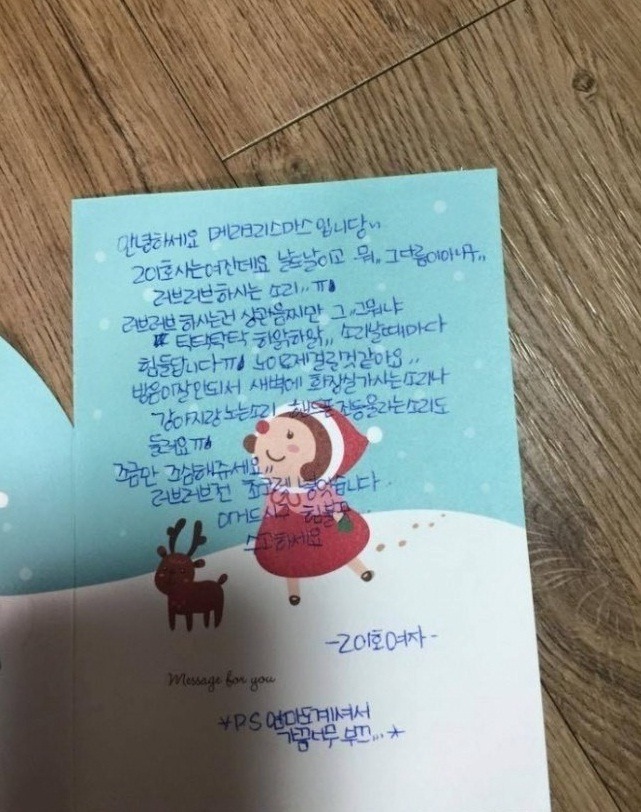 안녕하세요 메리크리스마스 입니당..
201호사는여잔데요 날도날이고 뭐.. 그다름이아니구..
러브러브 하시는 소리.. ㅠ
러브러브 하시는건 상관음찌만 그..그뭐냐
탁탁탁탁 하앍하앍.. 소리날때마다
힘들답니다ㅠ 노이로제걸릴것같아요..
방음이잘안되서 새벽에 화장실가시는소리나
강아지랑노는소리 핸드폰 진동울리는소리도
들려요ㅠ
조금만 조심해쥬세요..
러브러브건 조그 넣엇습니다
이거드시구 힘
스고하세요
-201호여자-
Message for you
*P.S 엄마도계셔서
가끔너무 부끄...*